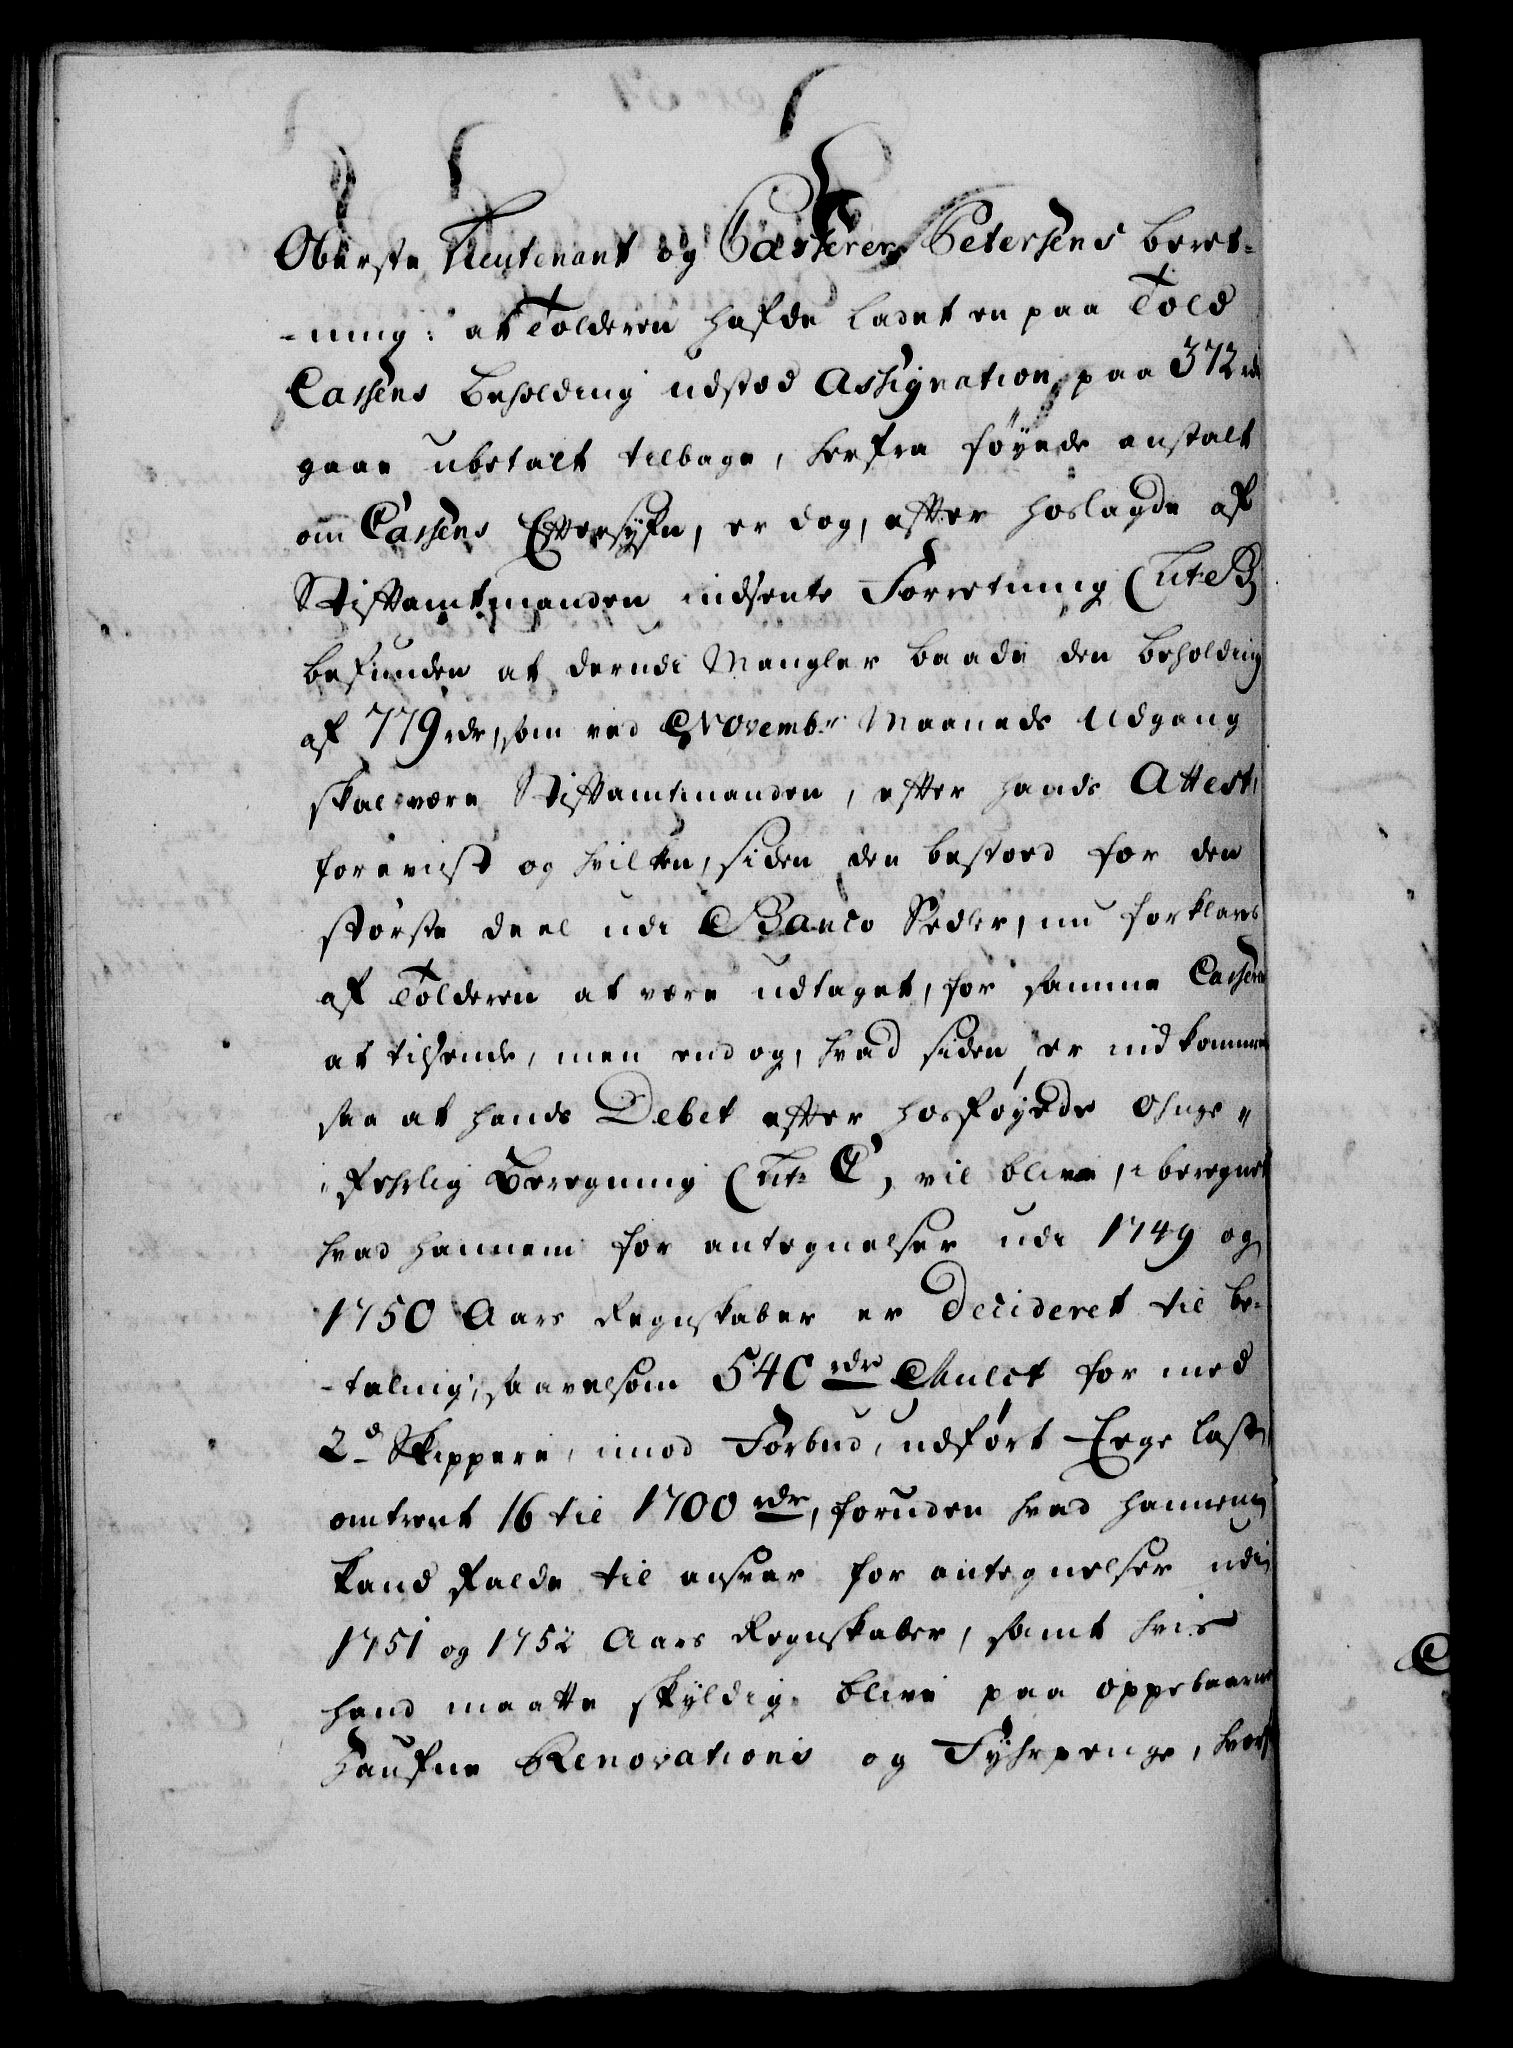 Oberste Lieutenant og Casserer Petersens beret-
-ning: at Tolderen hafde ladet en paa Told
Cassens beholding udsted Assignation paa 372 rd
gaae ubetalt tilbage, herfra føyede anstalt
om Cassens Eftersyn, er dog, efter hoslagde af
Stiftamtmanden indsente Forretning (Litr B)
befunden at derudi Mangler baade den beholding
af 779 rdr, som ved Novembr Maaneds Udgang
skal være Stiftamtmanden, efter hands Attest,
foreviist og hvilken, siden den bestoed for den
største deel udi Banco Sedler, nu forklares
af Tolderen at være udtaget, for samme Casseren
at tilsende, men end og, hvad siden er indkommen
saa at hands Debet efter hosføyede Ohnge-
-fehrlig Beregning (Litr C) vil blive, iberegnet
hvad hannem for antegnelser udi 1749 og
1750 Aars Regnskaber er Decideret til be-
-taling, saavelsom 540 rdr Mulct for med
2de Skippere, imod Forbud, udført Eege last,
omtrent 16 til 1700 rdr, foruden hvad hannem
kand falde til ansvar for antegnelser udi
1751 og 1752 Aars Regnskaber, samt hvis
hand maatte skyldig blive paa oppebaarne
Haufne Renovations og Fyhrpenge, hvor-